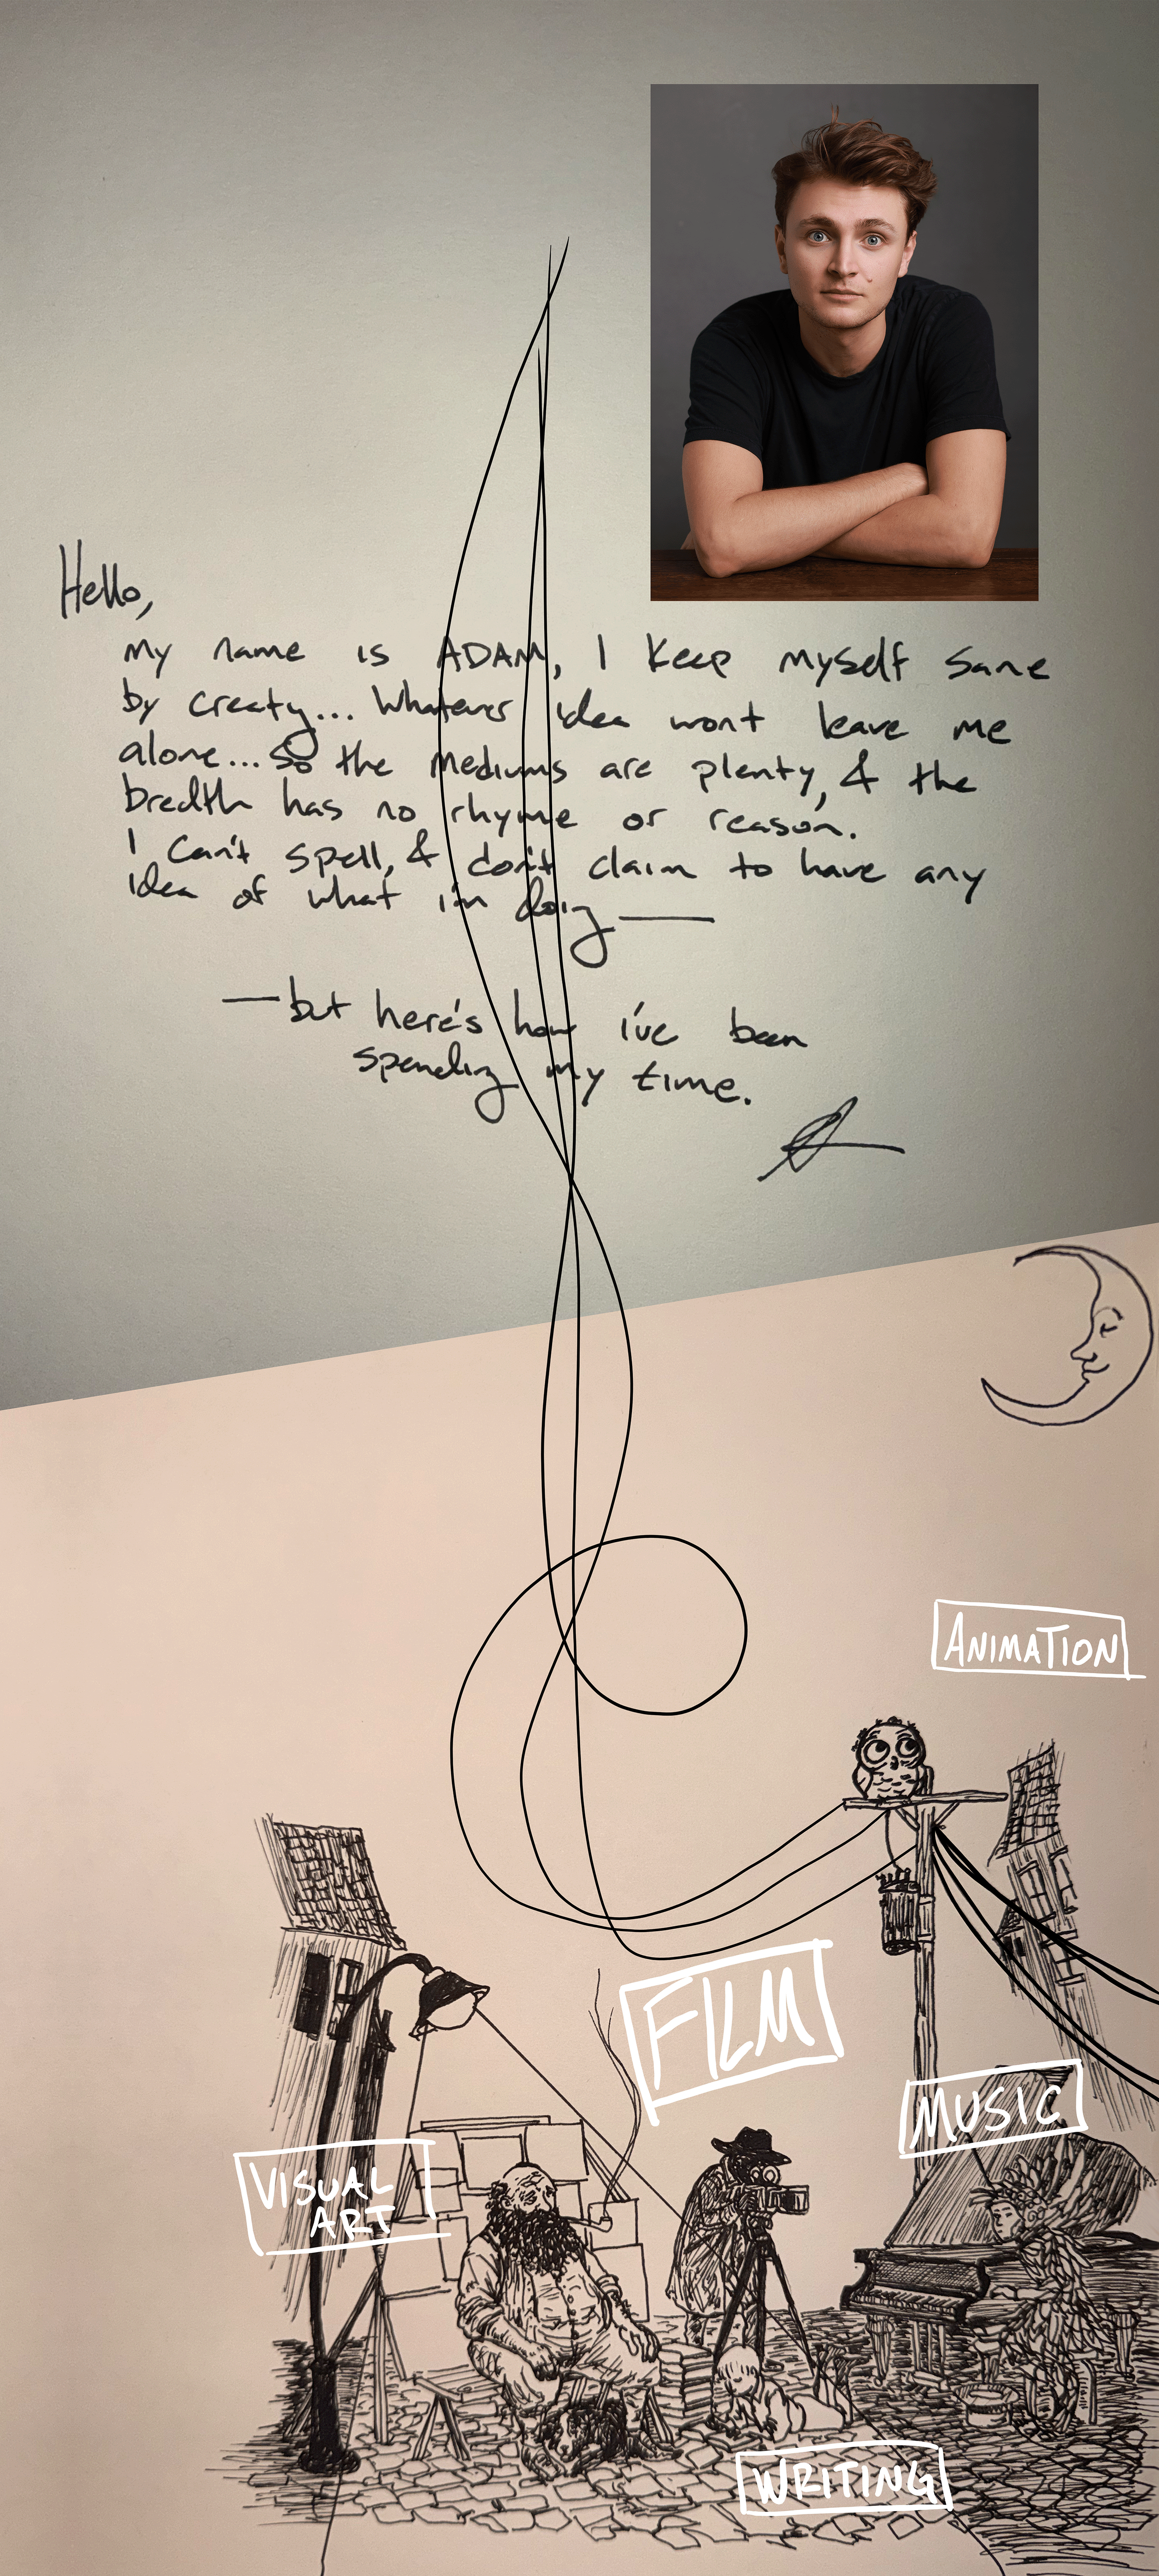 Hello,
my name is ADAM, I keep myself sane
by creaty... Whatever idea wont leave me
alone... so the mediums are plenty, & the
bredth has no rhyme or reason.
I can't spell, & don't claim to have any
idea of what i'm doing —
— but here's how i've been
spending my time.
ANIMATION
FILM
MUSIC
VISUAL
ART
WRITING